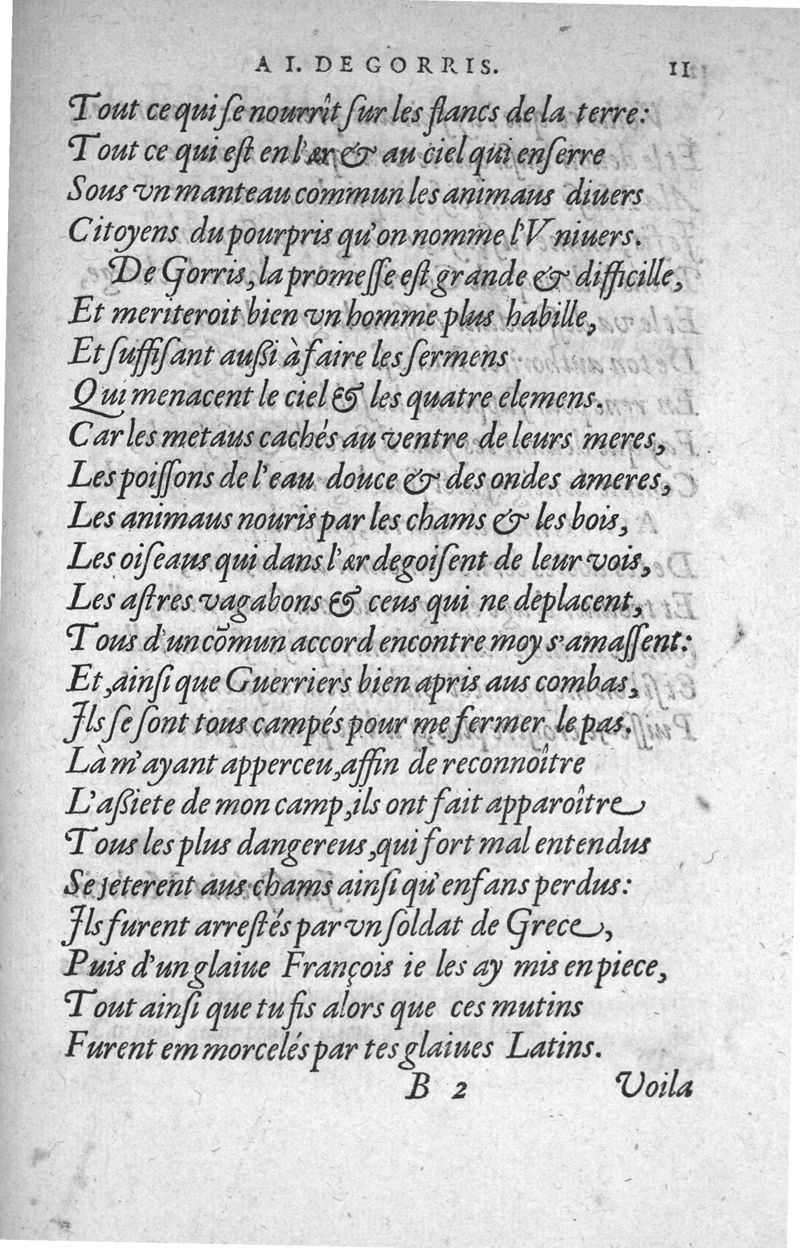 A I. DE GORRIS. 11
Tout ce qui ſe nourrît ſur les flancs de la terre:
Tout ce qui eſt en l'ær & au ciel qui enſerre
Sous vn manteau commun les animaus diuers
Citoyens du pourpris qu'on nomme l'Vniuers.
De Gorris, la promeſſe eſt grande & difficille,
Et meriteroit bien vn homme plus habille,
Et ſuffiſant auſſi à faire les ſermens
Qui menacent le ciel & les quatre elemens.
Car les metaus cachés au ventre de leurs meres,
Les poiſſons de l'eau douce & des ondes ameres,
Les animaus nouris par les chams & les bois,
Les oiſeaus qui dans l'ær degoiſent de leur vois,
Les aſtres vagabons & ceus qui ne deplacent,
Tous d'un cõmun accord encontre moy s'amaſſent:
Et, ainſi que Guerriers bien apris aus combas,
Ils ſe ſont tous campés pour me fermer le pas.
Là m'ayant apperceu, affin de reconnoître
L'aſſiete de mon camp, ils ont fait apparoître
Tous les plus dangereus, qui fort mal entendus
Se jeterent aus chams ainſi qu'enfans perdus:
Ils furent arreſtés par vn ſoldat de Grece,
Puis d'un glaiue François ie les ay mis en piece,
Tout ainſi que tu fis alors que ces mutins
Furent emmorcelés par tes glaiues Latins.
B 2 Voila